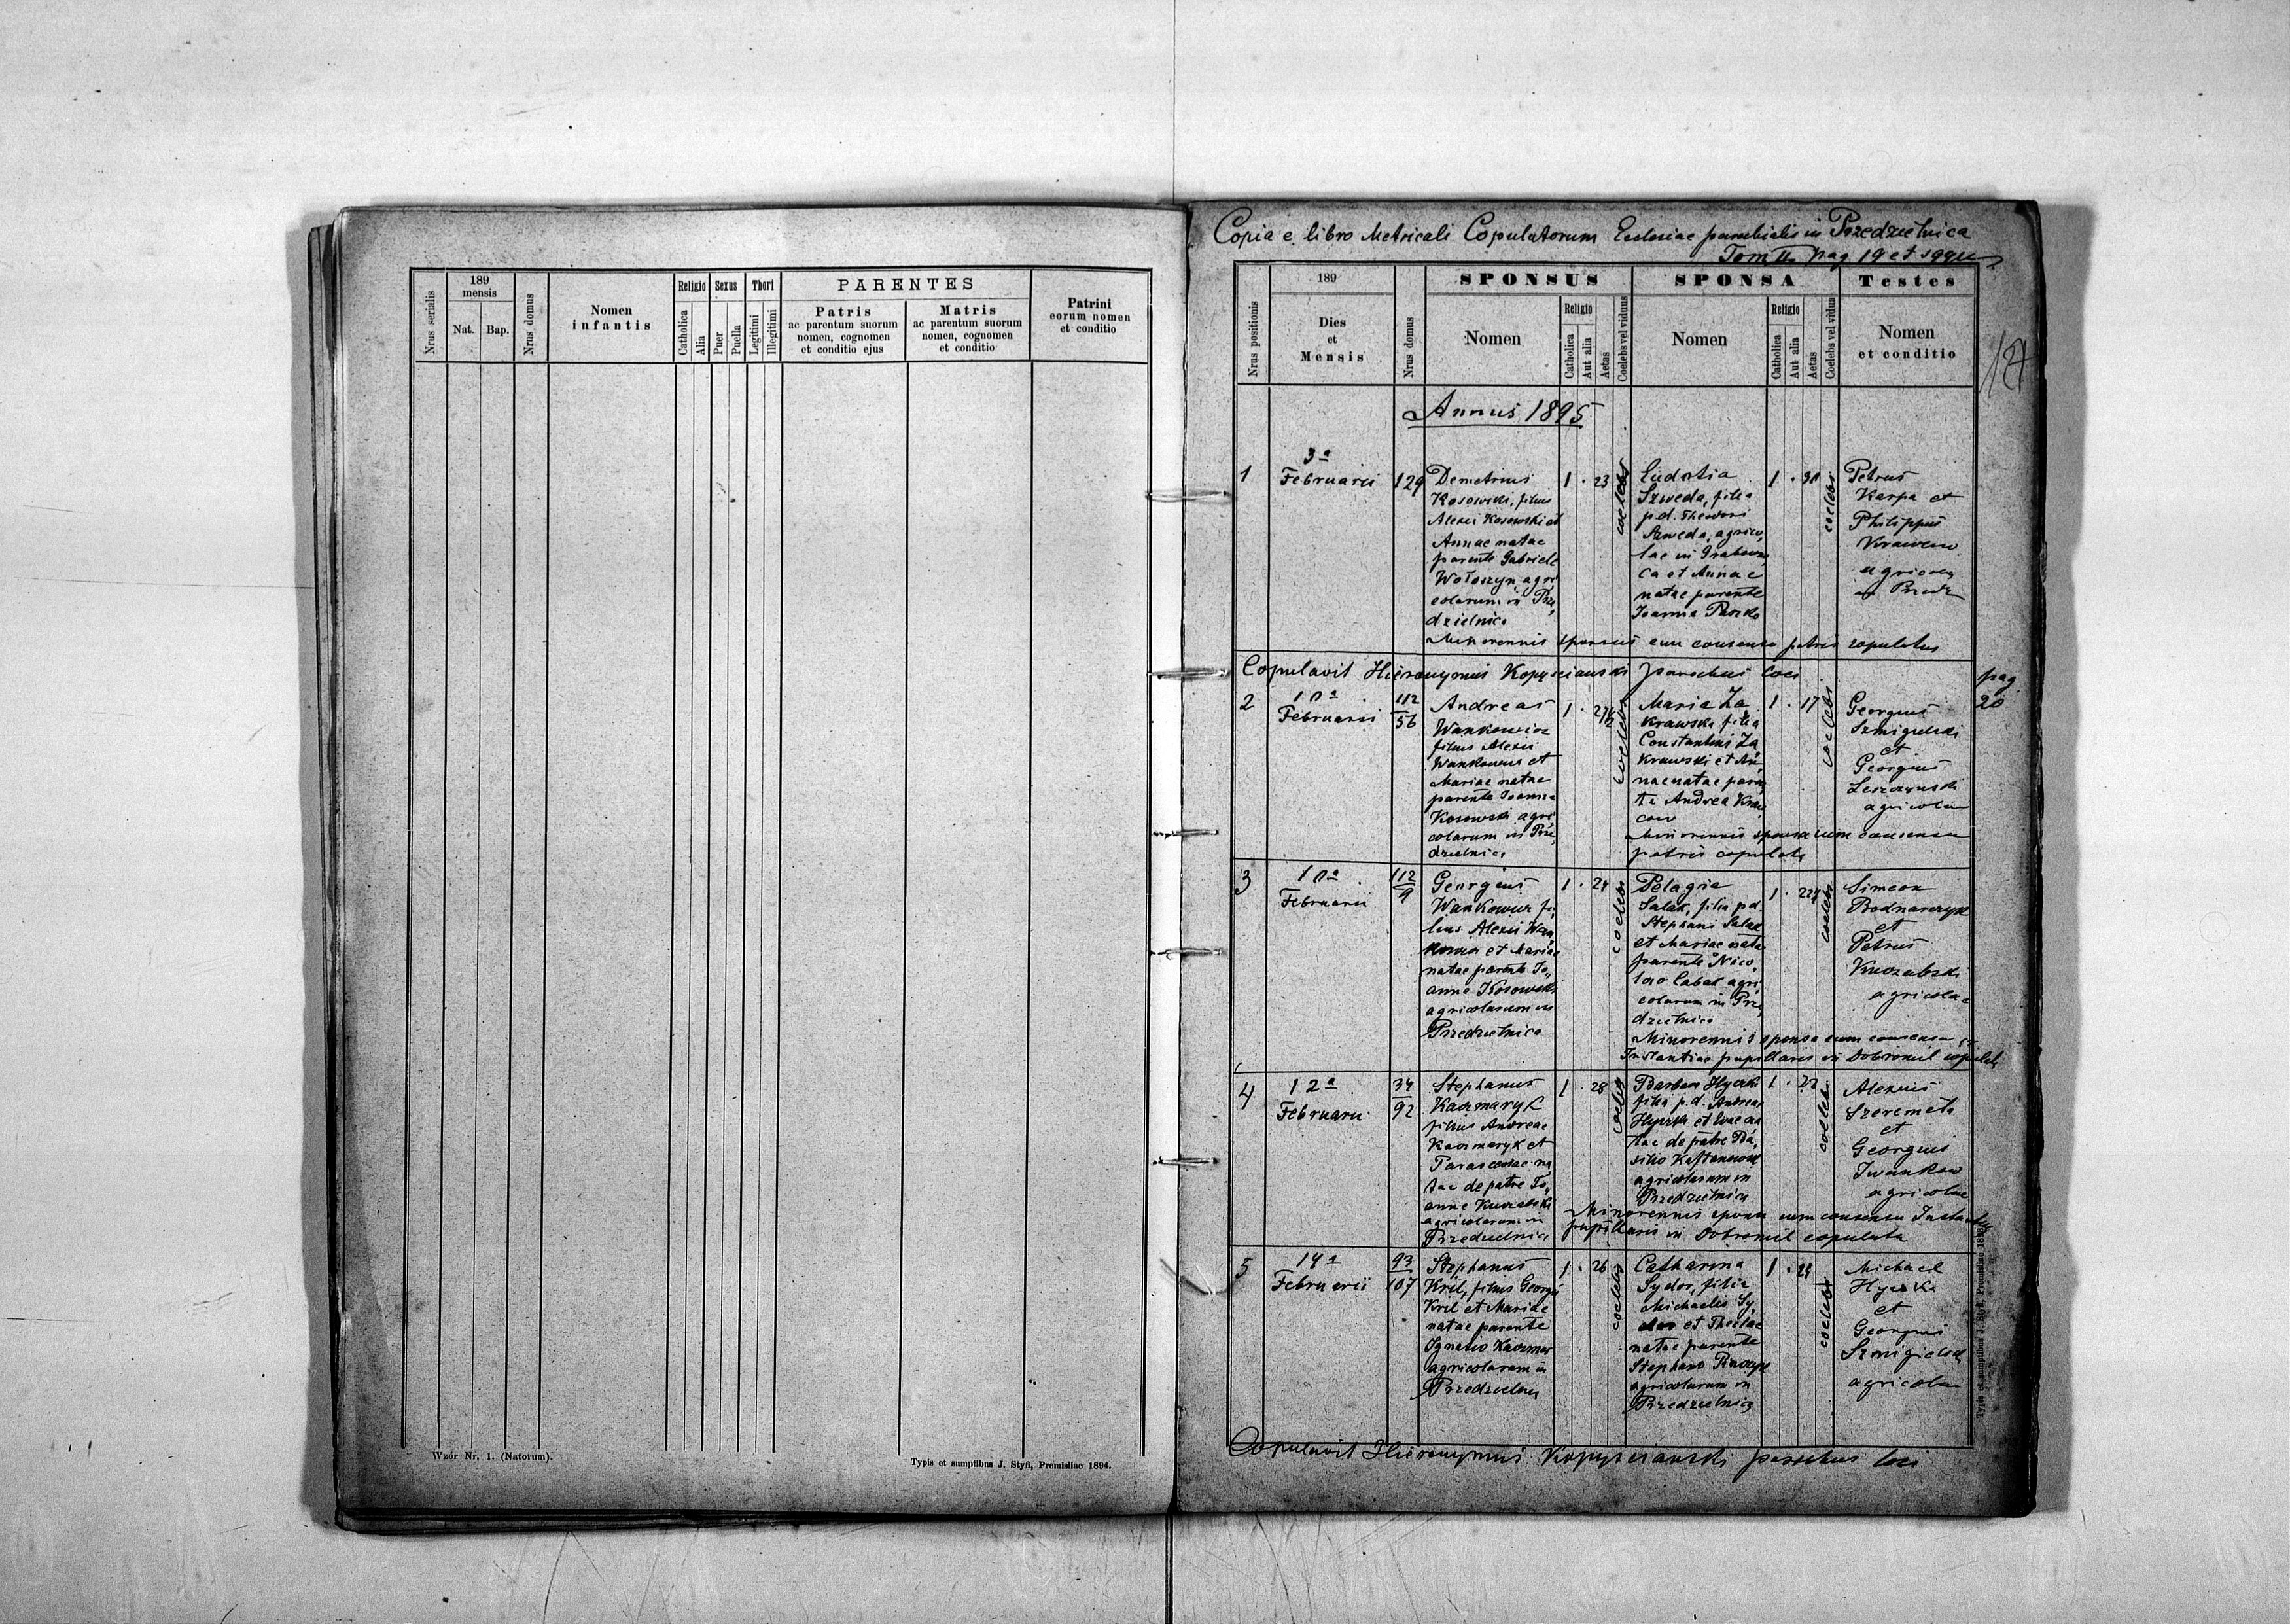 189
mensis
Nrus serialis
Nat.
Bap.
Nrus domus
Nomen
infantis
Religio
Catholica
Alia
Sexus
Puer
Puella
Thori
Legitimi
Illegitimi
PARENTES
Patris
ac parentum suorum
nomen, cognomen
et conditio ejus
Matris
ac parentum suorum
nomen, cognomen
et conditio
Patrini
eorum nomen
et conditio
Wzór Nr. 1. (Natorum).
Typis et sumptibus J. Styfi, Premisliae 1894.
Copia e libro Metricali Copulatorum Ecclesiae parochialis in Przedzielnica
Tom II pag 19 et
Nrus positionis
189
Dies
et
Mensis
Nrus domus
SPONSUS
Nomen
Religio
Catholica
Aut alia
Aetas
Coelebs vel viduus
SPONSA
Nomen
Religio
Catholica
Aut alia
Aetas
Coelebs vel vidua
Testes
Nomen
et conditio
Annus 1895
1
3a
Februarii
129
Demetrius
Kosowski, filius
Alexii Kosowski et
Annae natae
parente Gabriele
Wołoszyn agri
colarum in Prze
dzielnica
1 . 23
coelebs
Eudotia
Szweda, filia
p.d. Theodori
Szweda, agrico
lae in Grabow
ca et Annae
natae parente
Joanne Paszko
1 .
coelebs
Petrus
Karpa et
Philippus
Krawców
agricolae
Minorennis sponsus cum consensu patris copulatus
Copulavit Hieronymus Kopyscianski parochus loci
pag
20
2
10a
Februarii
112
56
Andreas
Wankowicz
filius Alexii
Wankowicz et
Mariae natae
parente Joanne
Kosowski agri
colarum in Prze
dzielnica
1 .
coelebs
Maria Za
krawska filia
Constantini Za
krawski et An
nae natae paren
te Andrea
1 . 17
coelebs
Georgius
Szmigielski
et
Georgius
Leszczynski
agricolae
Minorennis sponsa cum consensu
patris copulata
3
10a
Februarii
112
9
Georgius
Wankowicz fi
lius Alexii Wan
et Mariae
natae parente Jo
anne Kosowski
agricolarum in
Przedzielnica
1 . 24
coelebs
Pelagia
Salak, filia p.d.
Stephani Salak
et Mariae natae
parente Nico
lao Cabak agri
colarum in Prze
dzielnica
1 .
coelebs
Simeon
Bodnarczyk
et
Petrus
agricolae
Minorennis sponsa cum consensu
Instantiae pupillaris in Dobromil copulata
4
12a
Februarii
34
92
Stephanus
Kaczmaryk
filius Andreae
Kaczmaryk et
Parasceviae na
tae de patre Jo
anne
agricolarum in
Przedzielnica
1 . 28
coelebs
Barbara Hyczka
filia p.d. Andreae
Hyczka et Evae na
tae de patre Ba
silio
agricolarum in
Przedzielnica
1 .
coelebs
Alexius
Szeremeta
et
Georgius
Iwankow
agricolae
Minorennis sponsa cum consensu Instantiae
pupillaris in Dobromil copulata
5
14a
Februarii
93
107
Stephanus
Kril, filius Georgii
Kril et Mariae
natae parente
Ignatio Kaczmar
agricolarum in
Przedzielnica
1 . 26
coelebs
Catharina
Sydor, filia
Michaelis Sy
dor et Theclae
natae parente
Stephano
agricolarum in
Przedzielnica
1 .
coelebs
Michael
Hyczka
et
Georgius
Szmigielski
agricolae
Copulavit Hieronymus Kopyscianski parochus loci